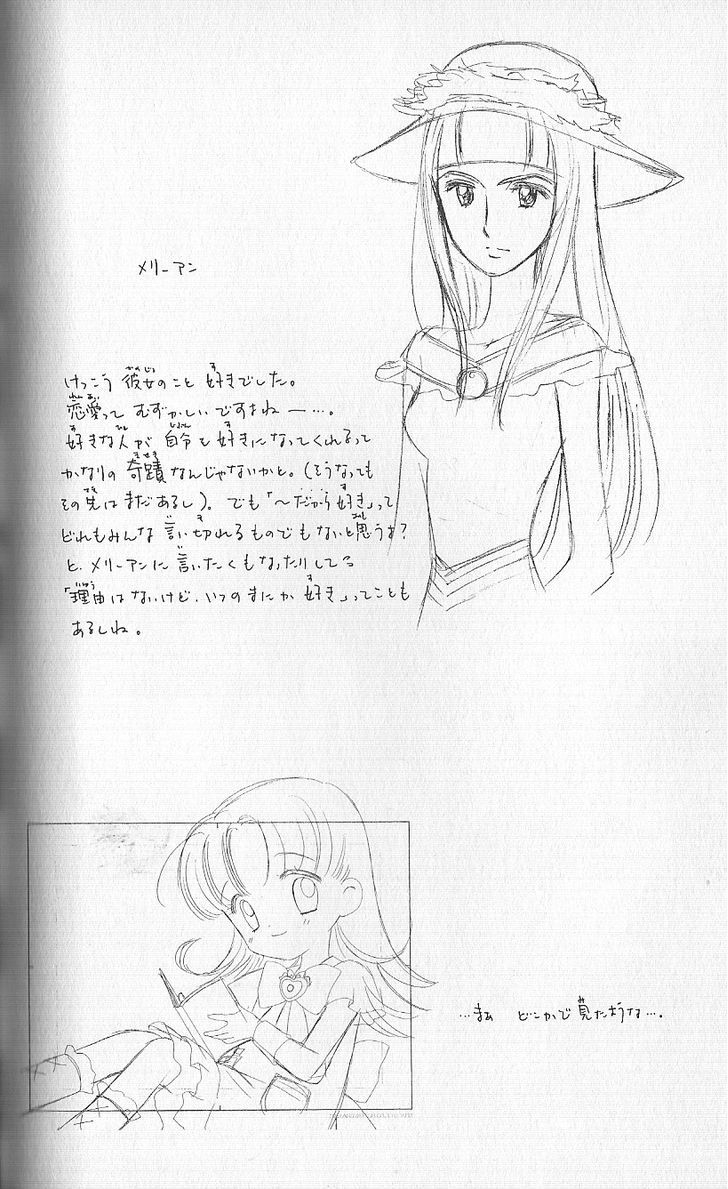 メリーアン
けっこう 彼女のこと 好きでした。
恋愛って むずかしいですよねー…。
好きな人が 自分を好きになってくれるって
かなりの 奇蹟 なんじゃないかと。(そうなっても
その先はまだあるし)。でも「〜だから好き」って
どれもみんな 言い切れるものでもないと思うよ?
と、メリーアンに言いたくもなったりして。
「理由はないけど、いつのまにか 好き」ってことも
あるしね。
…まぁ どこかで見たような…。